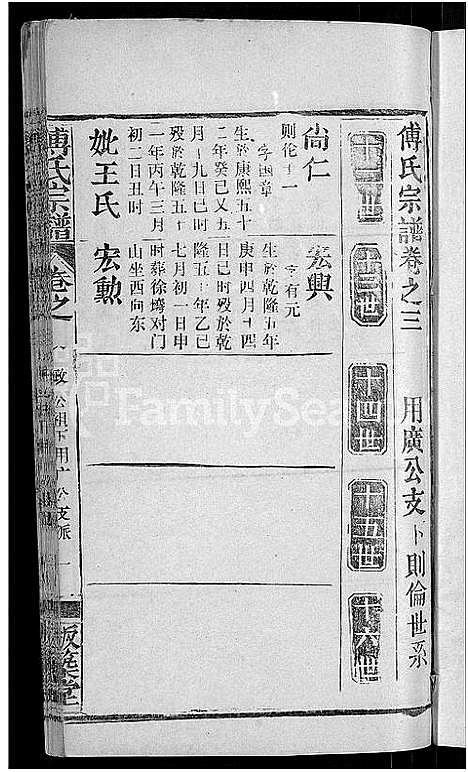 傅氏宗譜卷之三 用廣公支卜則倫世系
十二世 十三世 十四世 十五世 十六世
尚仁
则伦子一
字国章
生於康熙五十
二年癸巳又五
月十九日巳时
殁於乾隆五十
一年丙午三月
初二日丑时
妣王氏
宏興
字有元
生於乾隆五年
庚申四月十四
日巳时殁於乾
隆五十年乙巳
七月初一日申
时葬徐塆对门
山坐西向东
宏勳
傅氏宗譜 卷之
政公祖下用广公支派 一
版築堂
FamilySea